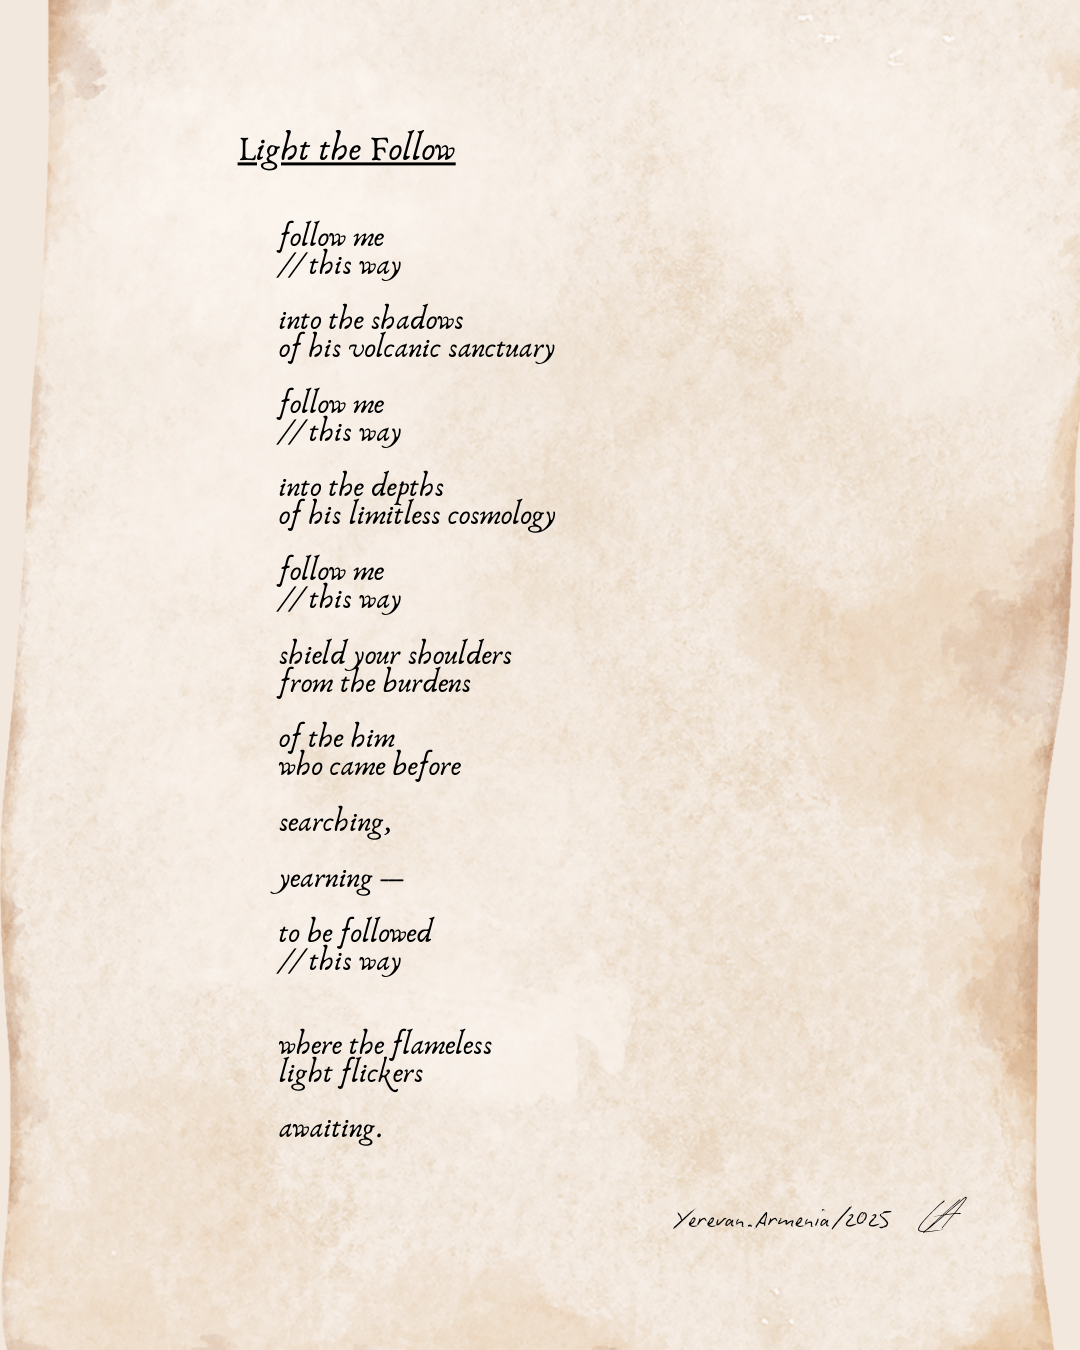 Light the Follow
follow me
// this way
into the shadows
of his volcanic sanctuary
follow me
// this way
into the depths
of his limitless cosmology
follow me
// this way
shield your shoulders
from the burdens
of the him
who came before
searching,
yearning —
to be followed
// this way
where the flameless
light flickers
awaiting.
Yerevan.Armenia/2025